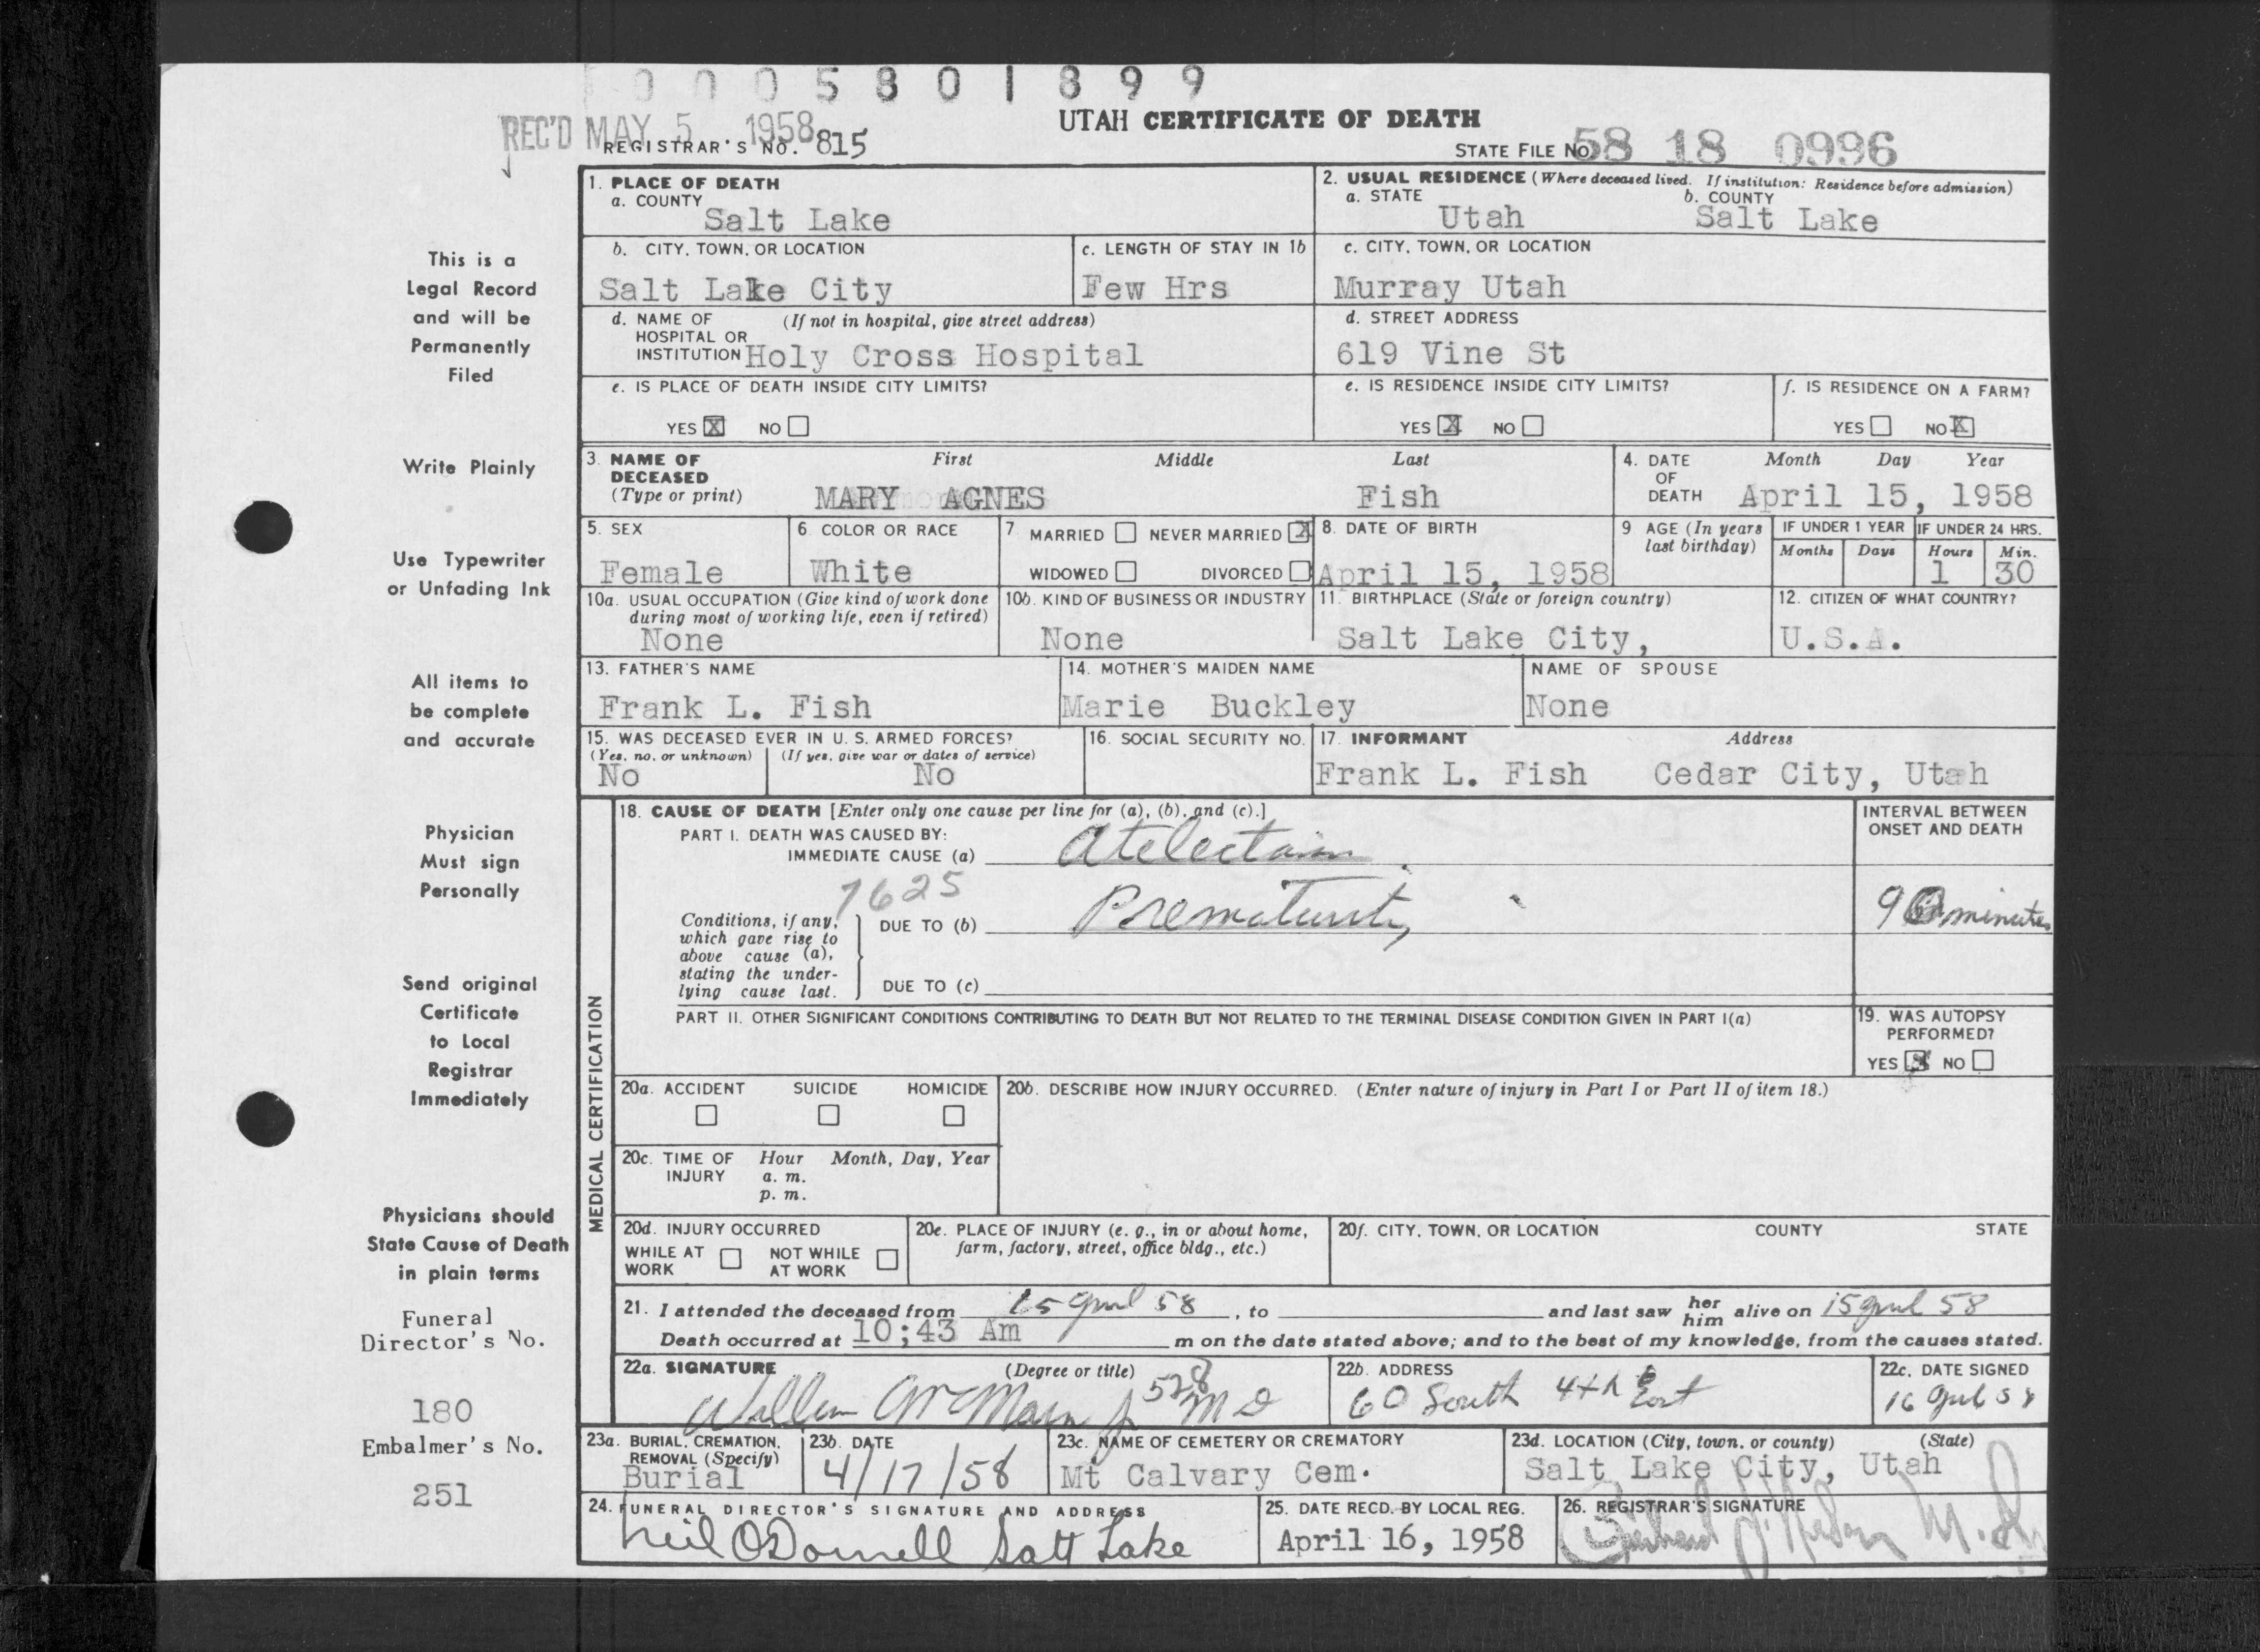 0 0 0 5 8 0 1 8 9 9
REC'D MAY 5 1958
UTAH CERTIFICATE OF DEATH
REGISTRAR'S NO. 815
STATE FILE NO. 58 18 0996
This is a
Legal Record
and will be
Permanently
Filed
Write Plainly
Use Typewriter
or Unfading Ink
All items to
be complete
and accurate
Physician
Must sign
Personally
Send original
Certificate
to Local
Registrar
Immediately
Physicians should
State Cause of Death
in plain terms
Funeral
Director's No.
180
Embalmer's No.
251
1. PLACE OF DEATH
a. COUNTY
Salt Lake
2. USUAL RESIDENCE (Where deceased lived. If institution: Residence before admission)
a. STATE b. COUNTY
Utah Salt Lake
b. CITY, TOWN, OR LOCATION
Salt Lake City
c. LENGTH OF STAY IN 1b
Few Hrs
c. CITY, TOWN, OR LOCATION
Murray Utah
d. NAME OF (If not in hospital, give street address)
HOSPITAL OR
INSTITUTION Holy Cross Hospital
d. STREET ADDRESS
619 Vine St
e. IS PLACE OF DEATH INSIDE CITY LIMITS?
YES X NO
e. IS RESIDENCE INSIDE CITY LIMITS?
YES X NO
f. IS RESIDENCE ON A FARM?
YES NO X
3. NAME OF First Middle Last
DECEASED
(Type or print) MARY AGNES Fish
4. DATE Month Day Year
OF
DEATH April 15, 1958
5. SEX
Female
6. COLOR OR RACE
White
7. MARRIED NEVER MARRIED X
WIDOWED DIVORCED
8. DATE OF BIRTH
April 15, 1958
9 AGE (In years
last birthday)
IF UNDER 1 YEAR IF UNDER 24 HRS.
Months Days Hours Min.
1 30
10a. USUAL OCCUPATION (Give kind of work done
during most of working life, even if retired)
None
10b. KIND OF BUSINESS OR INDUSTRY
None
11. BIRTHPLACE (State or foreign country)
Salt Lake City,
12. CITIZEN OF WHAT COUNTRY?
U.S.A.
13. FATHER'S NAME
Frank L. Fish
14. MOTHER'S MAIDEN NAME
Marie Buckley
NAME OF SPOUSE
None
15. WAS DECEASED EVER IN U. S. ARMED FORCES?
(Yes, no, or unknown) (If yes, give war or dates of service)
No No
16. SOCIAL SECURITY NO.
17. INFORMANT Address
Frank L. Fish Cedar City, Utah
MEDICAL CERTIFICATION
18. CAUSE OF DEATH [Enter only one cause per line for (a), (b), and (c).]
PART I. DEATH WAS CAUSED BY:
IMMEDIATE CAUSE (a) Atelectasis
INTERVAL BETWEEN
ONSET AND DEATH
7625
Conditions, if any,
which gave rise to
above cause (a),
stating the under-
lying cause last.
DUE TO (b) Prematurity
90 minutes
DUE TO (c)
PART II. OTHER SIGNIFICANT CONDITIONS CONTRIBUTING TO DEATH BUT NOT RELATED TO THE TERMINAL DISEASE CONDITION GIVEN IN PART I(a)
19. WAS AUTOPSY
PERFORMED?
YES X NO
20a. ACCIDENT SUICIDE HOMICIDE
20b. DESCRIBE HOW INJURY OCCURRED. (Enter nature of injury in Part I or Part II of item 18.)
20c. TIME OF Hour Month, Day, Year
INJURY a. m.
p. m.
20d. INJURY OCCURRED
WHILE AT NOT WHILE
WORK AT WORK
20e. PLACE OF INJURY (e. g., in or about home,
farm, factory, street, office bldg., etc.)
20f. CITY, TOWN, OR LOCATION COUNTY STATE
21. I attended the deceased from 15 April 58, to and last saw her him alive on 15 April 58
Death occurred at 10;43 Am m on the date stated above; and to the best of my knowledge, from the causes stated.
22a. SIGNATURE (Degree or title)
528
MD
22b. ADDRESS
60 South 4th East
22c. DATE SIGNED
16 April 58
23a. BURIAL, CREMATION,
REMOVAL (Specify)
Burial
23b. DATE
4/17/58
23c. NAME OF CEMETERY OR CREMATORY
Mt Calvary Cem.
23d. LOCATION (City, town, or county) (State)
Salt Lake City, Utah
24. FUNERAL DIRECTOR'S SIGNATURE AND ADDRESS
Neil O'Donnell Salt Lake
25. DATE RECD. BY LOCAL REG.
April 16, 1958
26. REGISTRAR'S SIGNATURE
M.D.